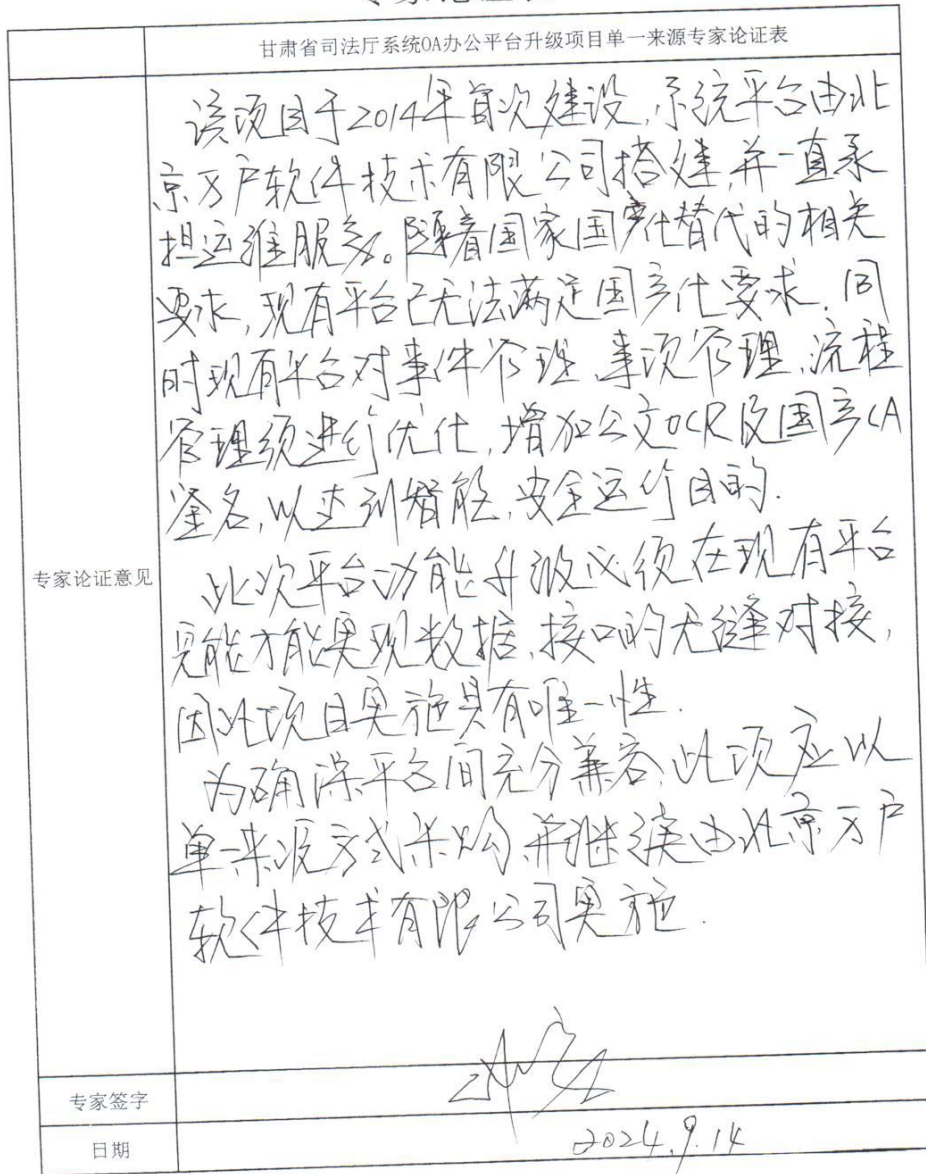 甘肃省司法厅系统OA办公平台升级项目单一来源专家论证表
专家论证意见
该项目于2014年首次建设,系统平台由北
京万户软件技术有限公司搭建,并一直承
担运维服务。随着国家国产化替代的相关
要求,现有平台已无法满足国产化要求.同
时现有平台对事件管理、事项管理、流程
管理须进行优化,增加公文OCR及国产CA
签名,以达到智能、安全运行目的.
此次平台功能升级必须在现有平台
才能实现数据、接口的无缝对接,
因此项目实施具有唯一性.
为确保平台间充分兼容,此项应以
单一来源方式采购,并继续由北京万户
软件技术有限公司实施.
专家签字
日期
2024.9.14